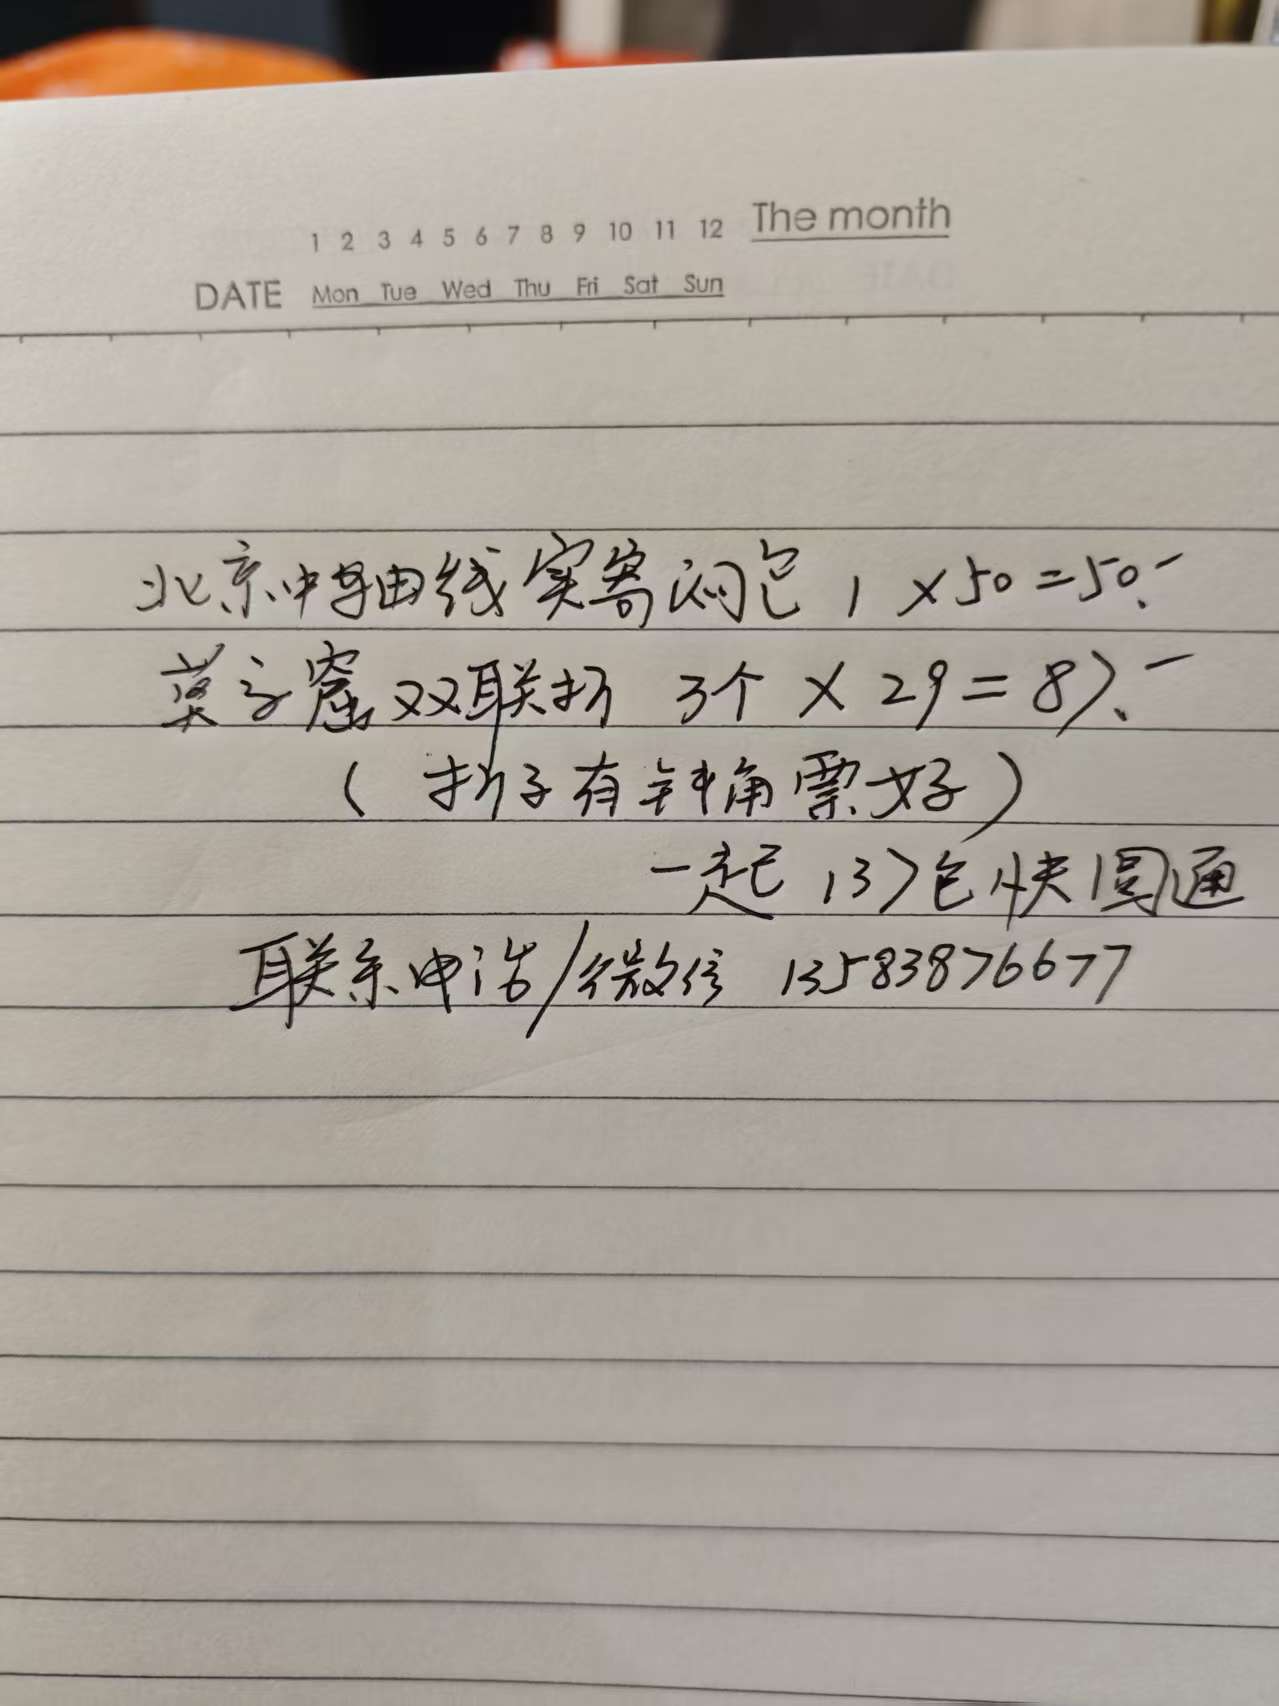 1 2 3 4 5 6 7 8 9 10 11 12 The month
DATE Mon Tue Wed Thu Fri Sat Sun
北京中轴线实寄闷包 1 ×50=50.-
莫高窟双联折 3个 × 29=87.-
(折子有斜角票好)
一起137包快圆通
联系电话/微信 13583876677